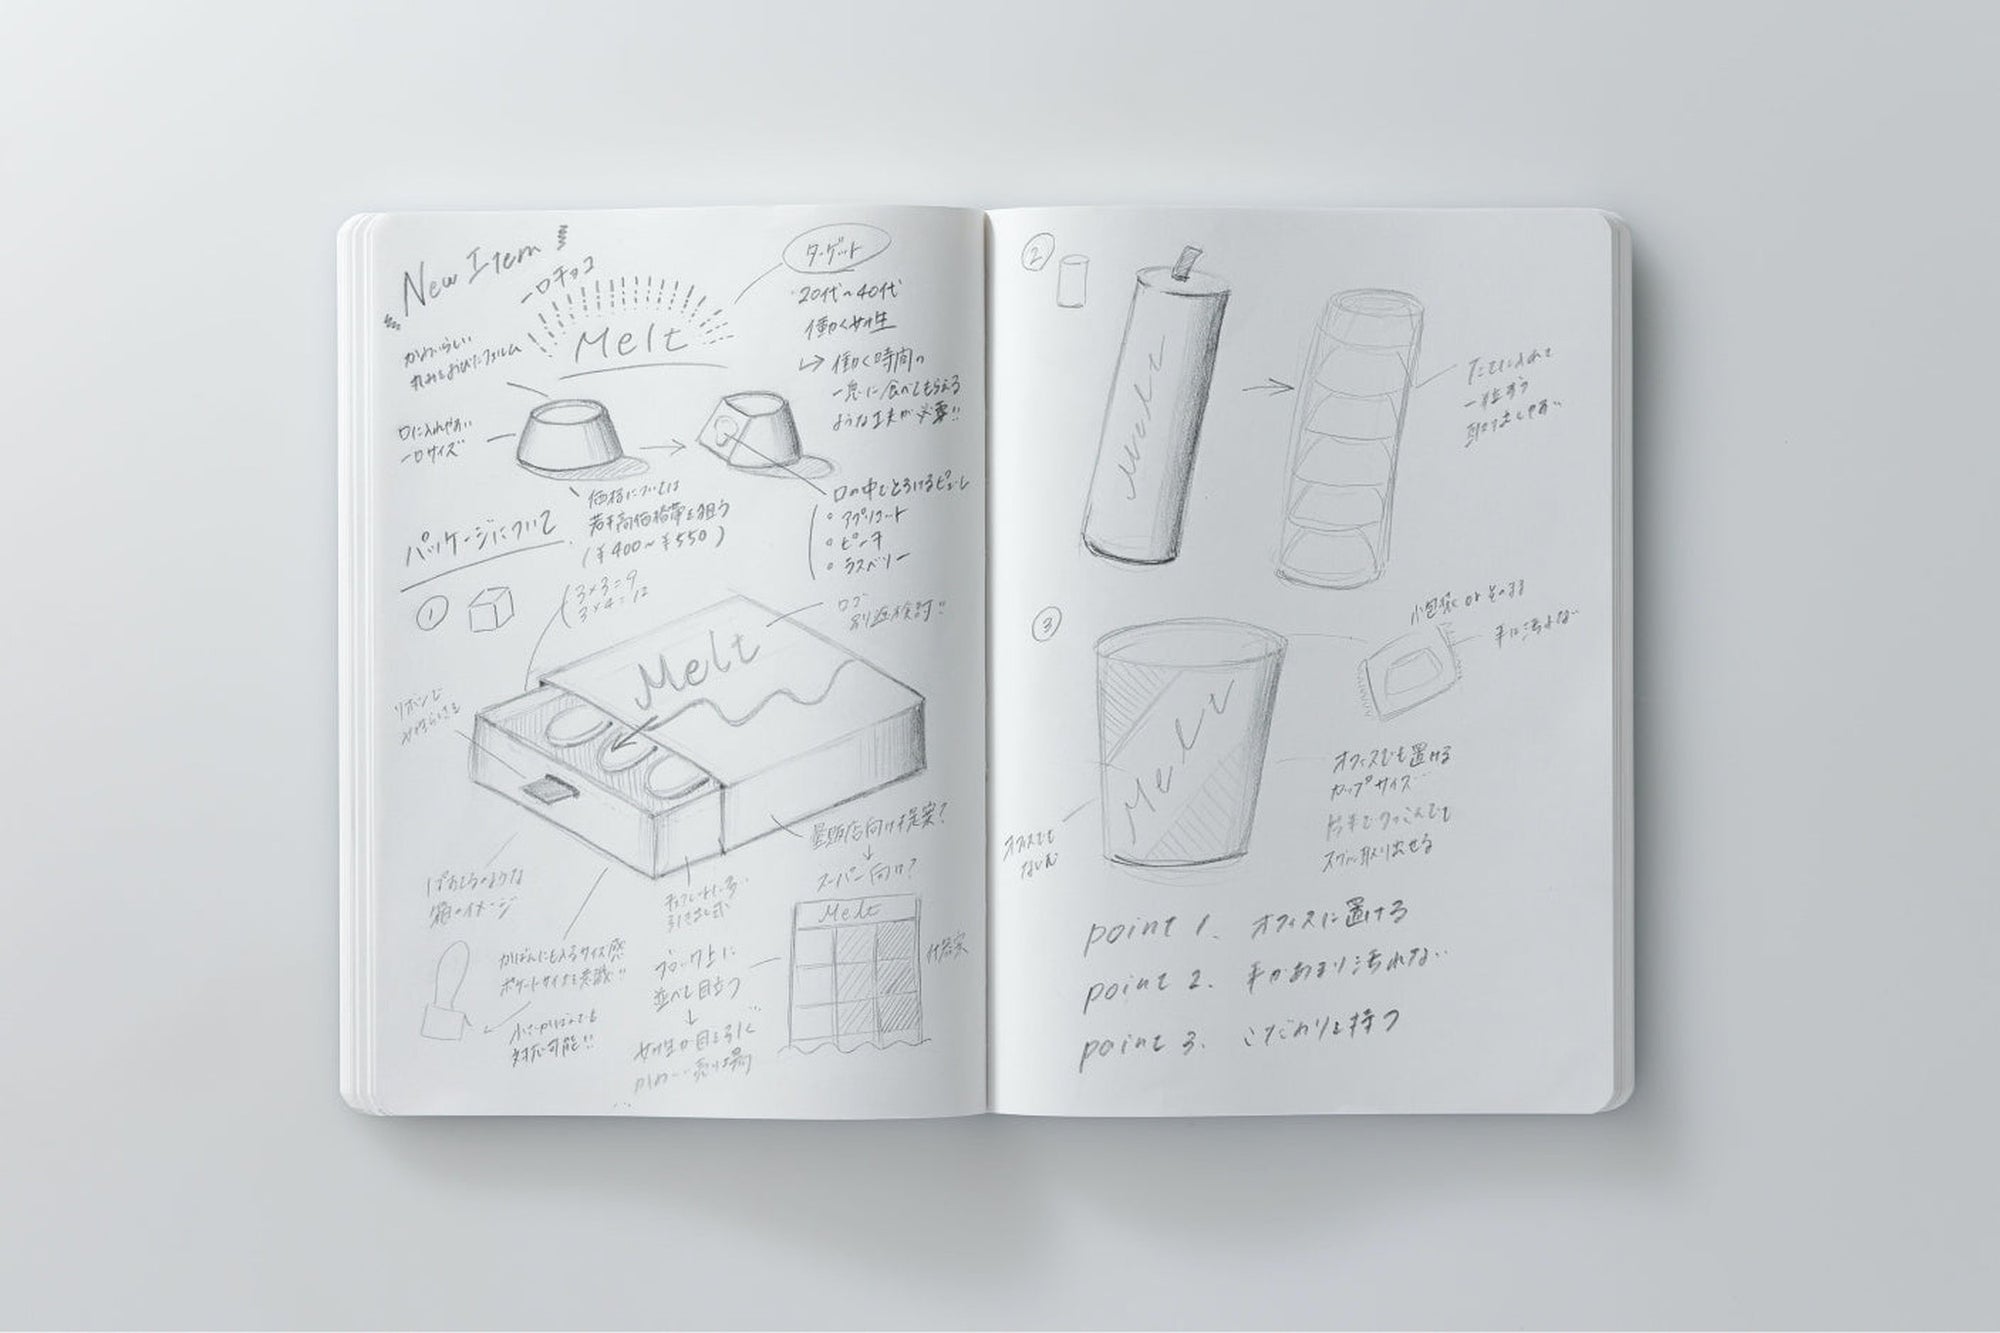 New Item!!
一口チョコ
Melt
ターゲット
20代〜40代
働く女性
↳ 働く時間の
一息に食べてもらえる
ような工夫が必要!!
かわいらしい
丸みをおびたフォルム
口に入れやすい
一口サイズ
価格については
若干高価格帯を狙う
(¥400〜¥550)
口の中でとろけるピューレ
○ アプリコット
○ ピーチ
○ ラズベリー
パッケージについて
①
3×3=9
3×4=12
ロゴ
別途検討!!
Melt
リボンで
量販店向け提案?
↓
スーパー向け?
箱のイメージ
引き出し式
かばんにも入るサイズ感
ポケットサイズを意識!!
小さいかばんでも
対応可能!!
ブロック上に
並べて目立つ
↓
女性の目を引く
かわいい売り場
Melt
什器案
②
Melt
たてに入れて
一粒ずつ
取り出しやすい
③
Melt
小包装 or そのまま
手に汚れない
オフィスでも置ける
カップサイズ
片手でつっこんでも
スグに取り出せる
オフィスでも
point 1. オフィスに置ける
point 2. 手があまり汚れない
point 3. こだわりを持つ